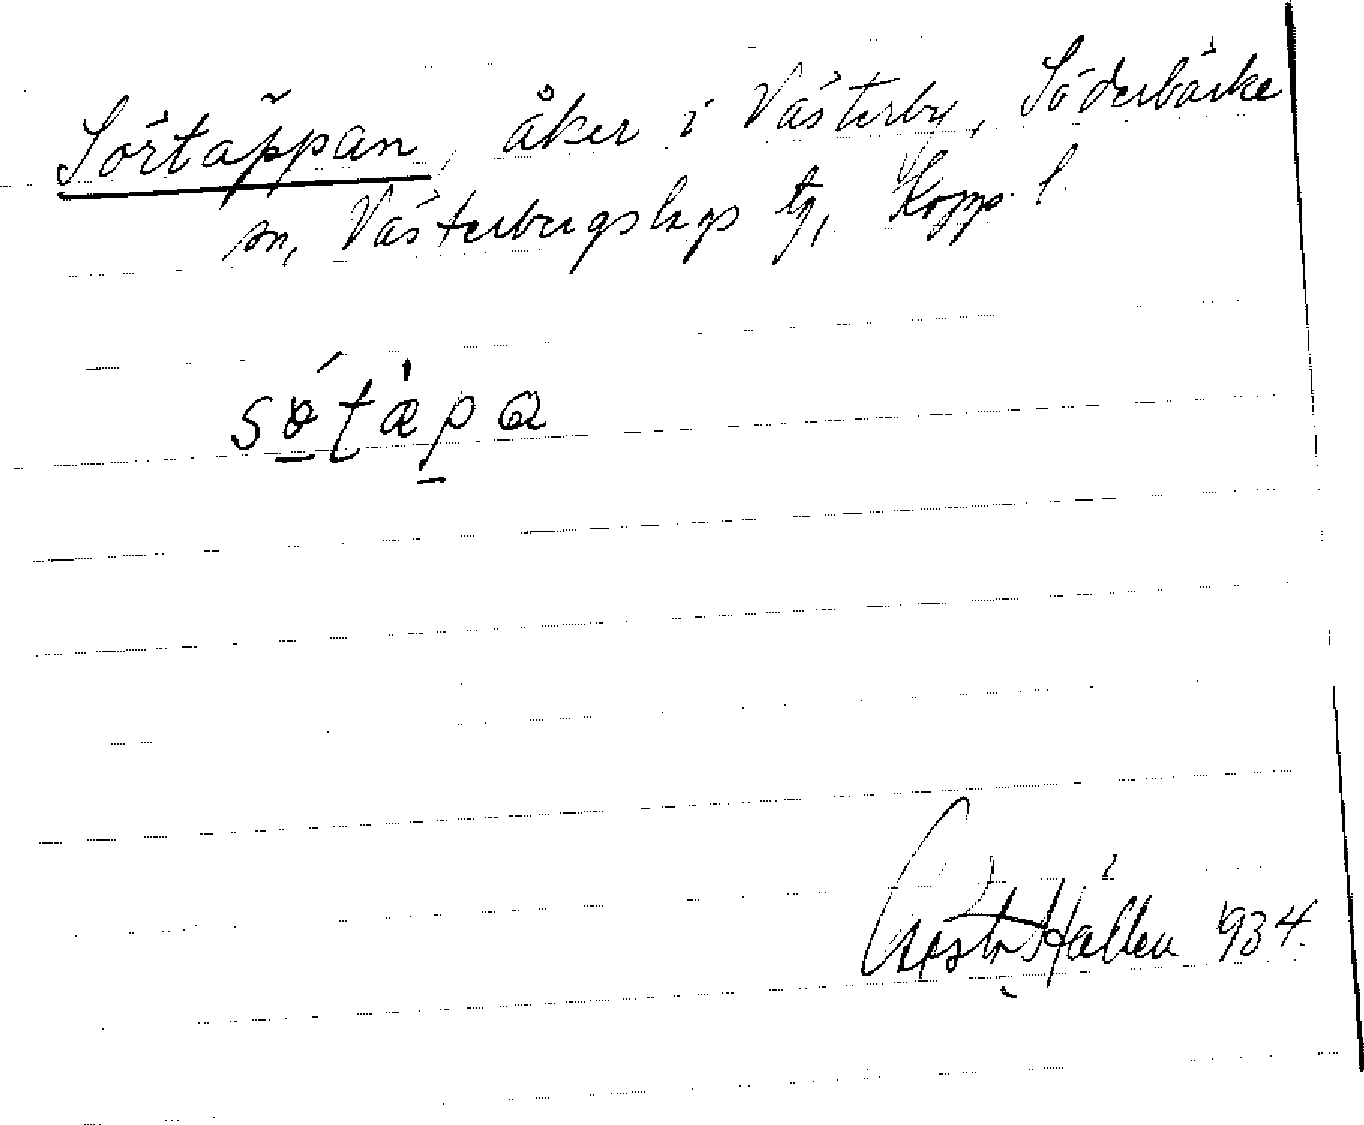 Sörtäppan, åker i Västerby, Söderbärke
sn, Västerbergslags tg, Kopp. l.
sǿ̱ṯæ̀p̱a
Gösta Hållén 1934.